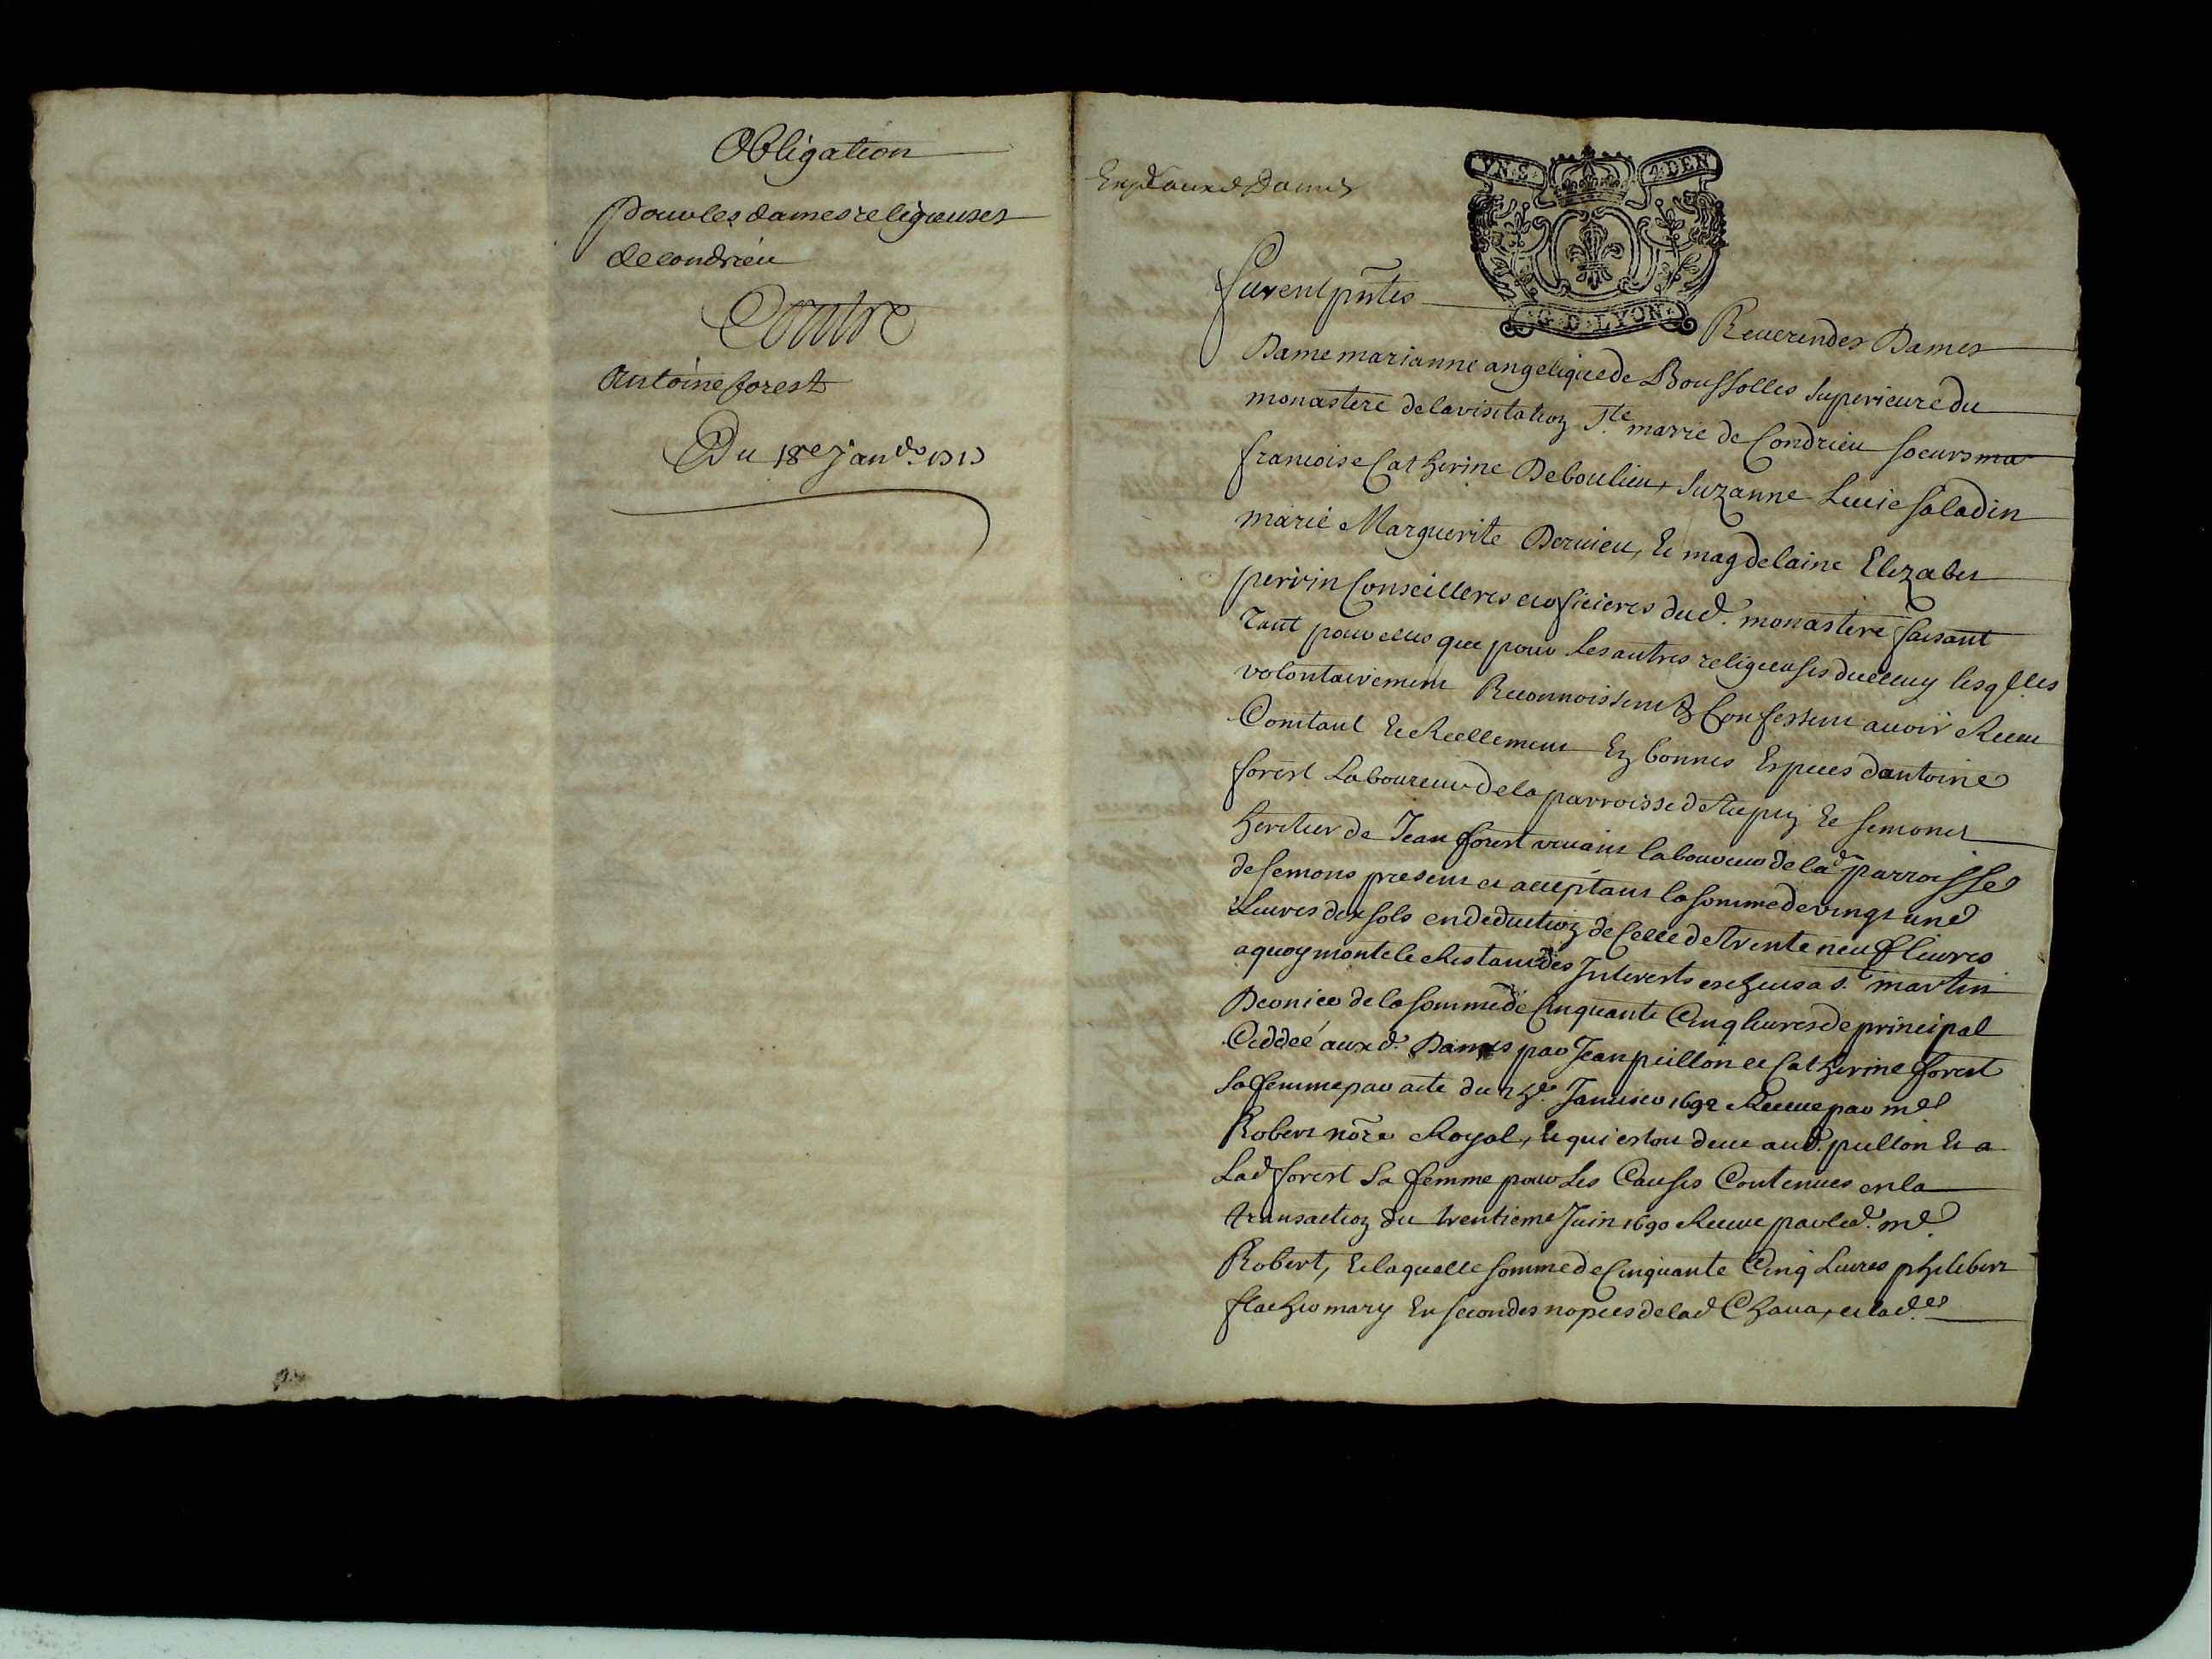 Obligation
pour les dames religieuses
de condrieu
Contre
Antoine forest
Du 18e janvr 1713
Expé auxd Dames
VN·S· 4·DEN
·G·D·LYON·
furent pntes
Reuerendes Dames
Dame marianne angelique de Boussolles superieure du
monastere de la visitation Ste marie de Condrieu soeurs ma
francoise Catherine Deboulieu, Suzanne Lucie saladin
marie Marguerite Deruieu, Et magdelaine Elizabet
perrin Conseilleres et oficieres dud. monastere faisant
tant pour elles que pour les autres religieuses dicelluy lesqlles
volontairement Reconnoissent & Confessent auoir Receu
Comtant Et Reellement En bonnes Especes dantoine
forest Laboureur de la parroisse de tupin Et semons
heritier de Jean forest viuant laboureur de lad parroisse
de semons present et acceptant la somme de vingt une
Liures dix sols en deduction de Celle de trente neuf liures
a quoy monte le Restant des Interests escheus a st martin
Dernier de la somme de Cinquante Cinq liures de principal
Ceddée auxd. Dames par Jean peillon et Catherine forest
sa femme par acte du Januier 1692 Receue par me
Robert nore Royal, Et qui estoit deue aud. peillon Et a
Lad forest sa femme pour Les Causes Contenues en la
transaction du trentieme Juin 1690 Receue par led. me
Robert, Et laquelle somme de Cinquante Cinq Liures philibert
flachier mary En secondes nopces de lad Chaua, et lad.